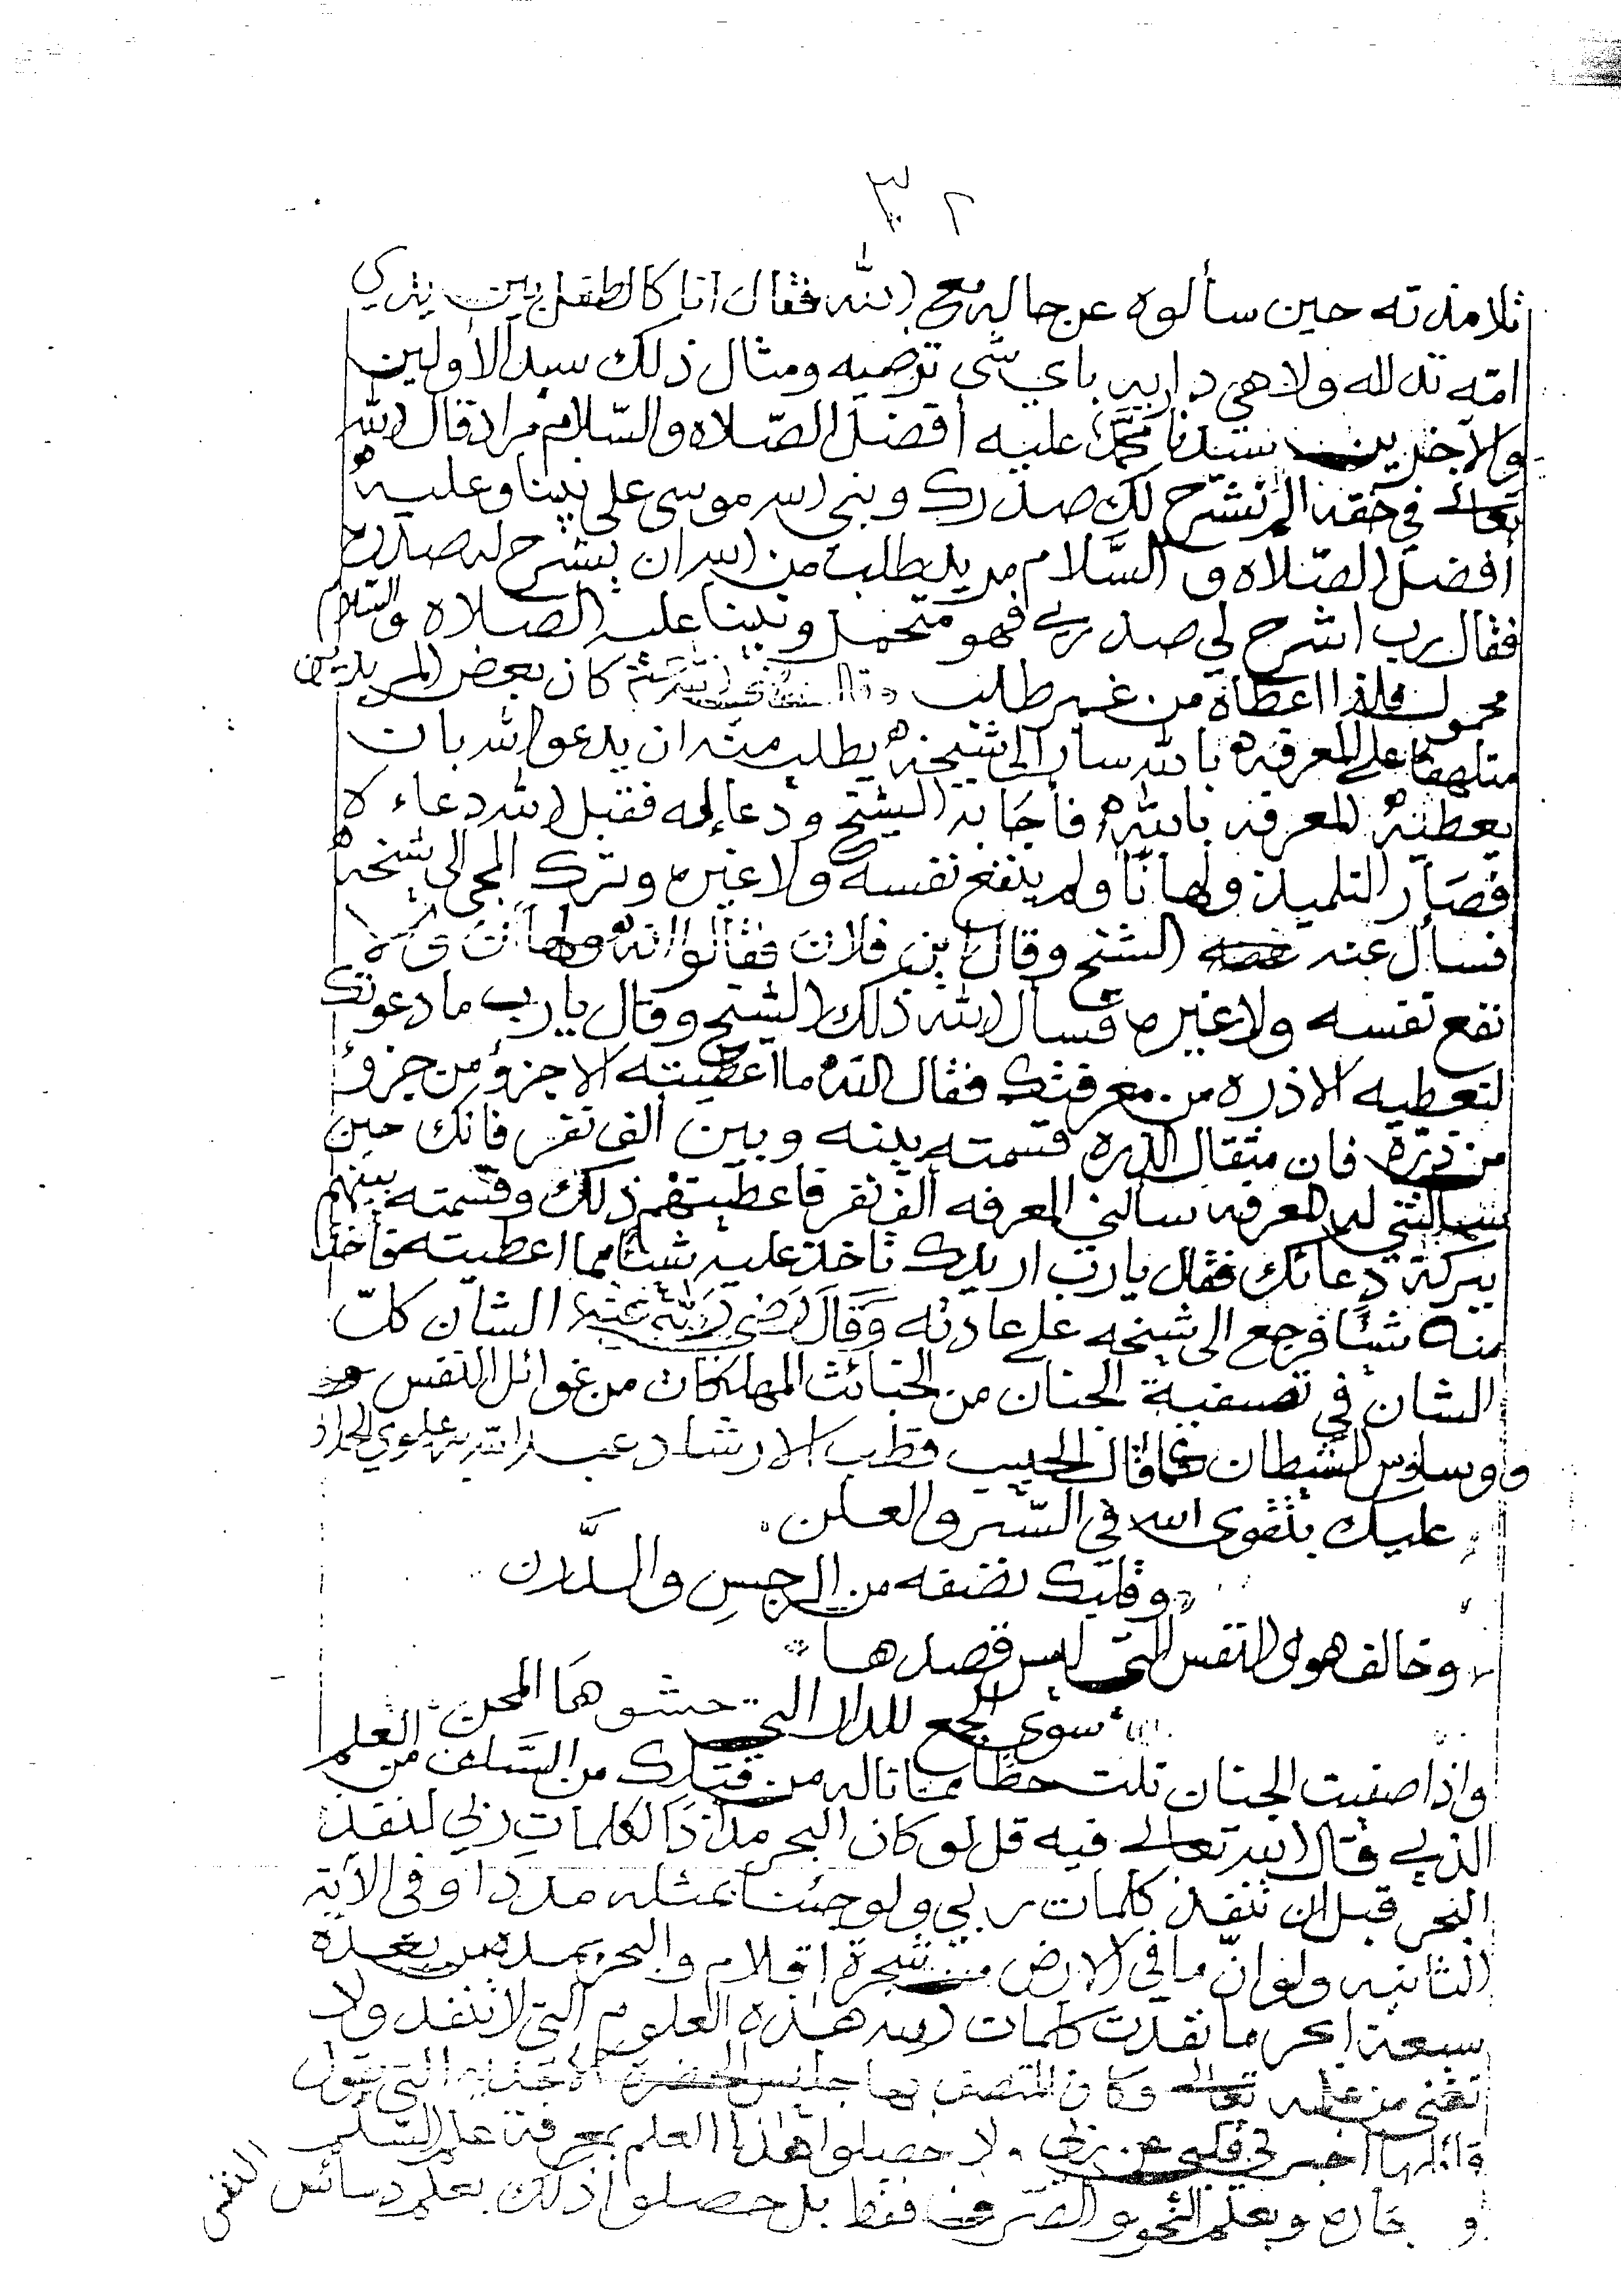 ٣٢
تلامذته حين سألوه عن حاله مع الله فقال انا كالطفل بين يدي
امه تدلله ولا هي داريه باي شي ترضيه ومثال ذلك سيد الأولين
والآخرين سيدنا محمد عليه أفضل الصّلاه والسّلام مراد قال الله
تعالى في حقه الم نشرح لك صدرك ونبي الله موسى على نبينا وعليه
أفضل الصّلاه و السَّلام مريد يطلب من الله ان يشرح له صدره
فقال رب اشرح لي صدري فهو متحمل ونبينا عليه الصلاة والسّلام
محمول فلذا اعطاه من غير طلب وقال رضي الله عنه كان بعض المريدين
متلهفًا على المعرفه بالله سار الى شيخه يطلب منه ان يدعو الله بان
يعطيه المعرفه بالله فأجابه الشيخ ودعا له فقبل الله دعاءه
فصار التلميذ ولهانًا ولم ينفع نفسه ولا غيره وترك المجي الى شيخه
فسأل عنه الشيخ وقال اين فلان فقالوا انه ولهان ولا
نفع نفسه ولا غيره فسأل الله ذلك الشيخ وقال يارب ما دعوتك
لتعطيه الا ذره من معرفتك فقال الله ما اعطيته الا جزؤ من جزؤ
من ذرة فان مثقال الذره قسمته بينه وبين الف نفر فانك حين
سألتني له المعرفه سألني المعرفه ألف نفر فاعطيتهم ذلك وقسمته بينهم
ببركة دعائك فقال يارب اريدك تاخذ عليه شيئًا مما اعطيته فأخذ
منه شيئًا فرجع الى شيخه على عادته وَقَالَ رَضي الله عنه الشان كلّ
الشان في تصفية الجنان من الخبائث المهلكات من غوائل النفس
ووساوس الشيطان كما قال الحبيب قطب الارشاد عبد الله بن علوي الحداد
عليك بتقوى الله في السّر والعلن
وقلبك نضفه من الرجس والدَّرن
وخالف هوى النفس التي ليس قصدها
سوى الجمع للدار التي حشوها المحن
واذا صفيت الجنان نلت حظًا مما ناله من قبلك من السَّلف من العلم
الذي قال الله تعالى فيه قل لو كان البحر مدادًا لكلمات ربي لنفد
البحر قبل ان تنفد كلمات ربي ولو جئنا بمثله مددا وفي الآية
الثانيه ولو انّ ما في الارض من شجرة اقلام والبحر يمده من بعده
سبعة ابحر ما نفدت كلمات الله هذه العلوم التي لا تنفد ولا
تفنى من علمه تعالى وكان المتصف بها جليس الحضرة الأحديه التي يقول
قائلها اخبرني قلبي عن ربي ولا حصلوا هذا العلم بمعرفة علم السّلم
و بعلم النّحو و الصّرف فقط بل حصلوا ذلك بعلم دسائس النفس